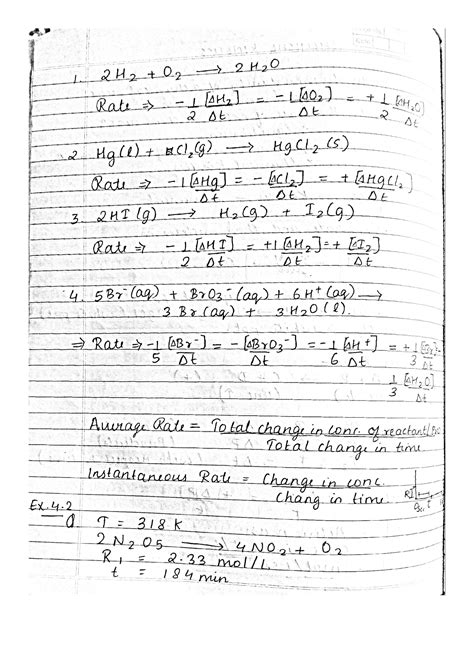 1. 2H₂ + O₂ ⟶ 2H₂O
Rate ⇒ -1/2 [ΔH₂]/Δt = -1[ΔO₂]/Δt = +1/2 [ΔH₂O]/Δt
2. Hg(l) + Cl₂(g) ⟶ HgCl₂(s)
Rate ⇒ -1[ΔHg]/Δt = -[ΔCl₂]/Δt = +[ΔHgCl₂]/Δt
3. 2HI(g) ⟶ H₂(g) + I₂(g)
Rate ⇒ -1/2 [ΔHI]/Δt = +1[ΔH₂]/Δt = +[ΔI₂]/Δt
4. 5Br⁻(aq) + BrO₃⁻(aq) + 6H⁺(aq) ⟶
3Br(aq) + 3H₂O(l).
⇒ Rate ⇒ -1/5 [ΔBr⁻]/Δt = -[ΔBrO₃⁻]/Δt = -1/6 [ΔH⁺]/Δt = +1/3
1/3 [ΔH₂O]/Δt
Average Rate = Total change in conc. of reactant/
Total change in time
Instantaneous Rate = Change in conc
chang in time
Ex. 4.2
T = 318 K
2N₂O₅ ⟶ 4NO₂ + O₂
R₁ = 2.33 mol/L
t = 184 min